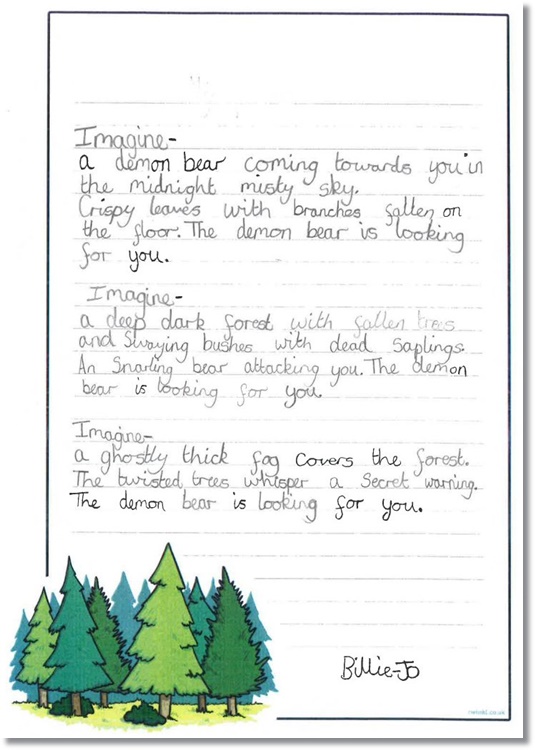 Imagine-
a demon bear coming towards you in
the midnight misty sky.
Crispy leaves with branches fallen on
the floor. The demon bear is looking
for you.
Imagine-
a deep dark forest with fallen trees
and Swaying bushes with dead Saplings.
An Snarling bear attacking you. The demon
bear is looking for you.
Imagine-
a ghostly thick fog covers the forest.
The twisted trees whisper a Secret warning.
The demon bear is looking for you.
Billie-Jo